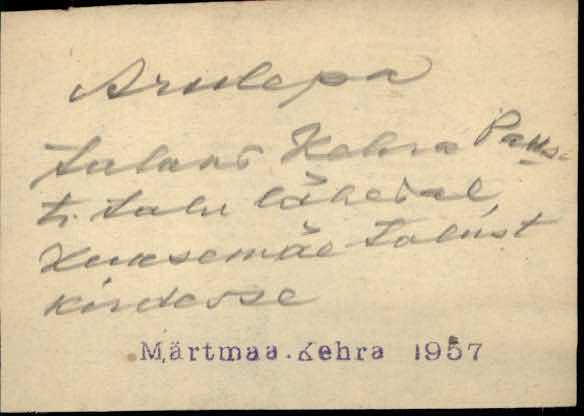 Arulepa
Kehra Paus-
ti talu lähedal,
Kuusemäe talust
kirdesse
Märtmaa.Kehra 1957